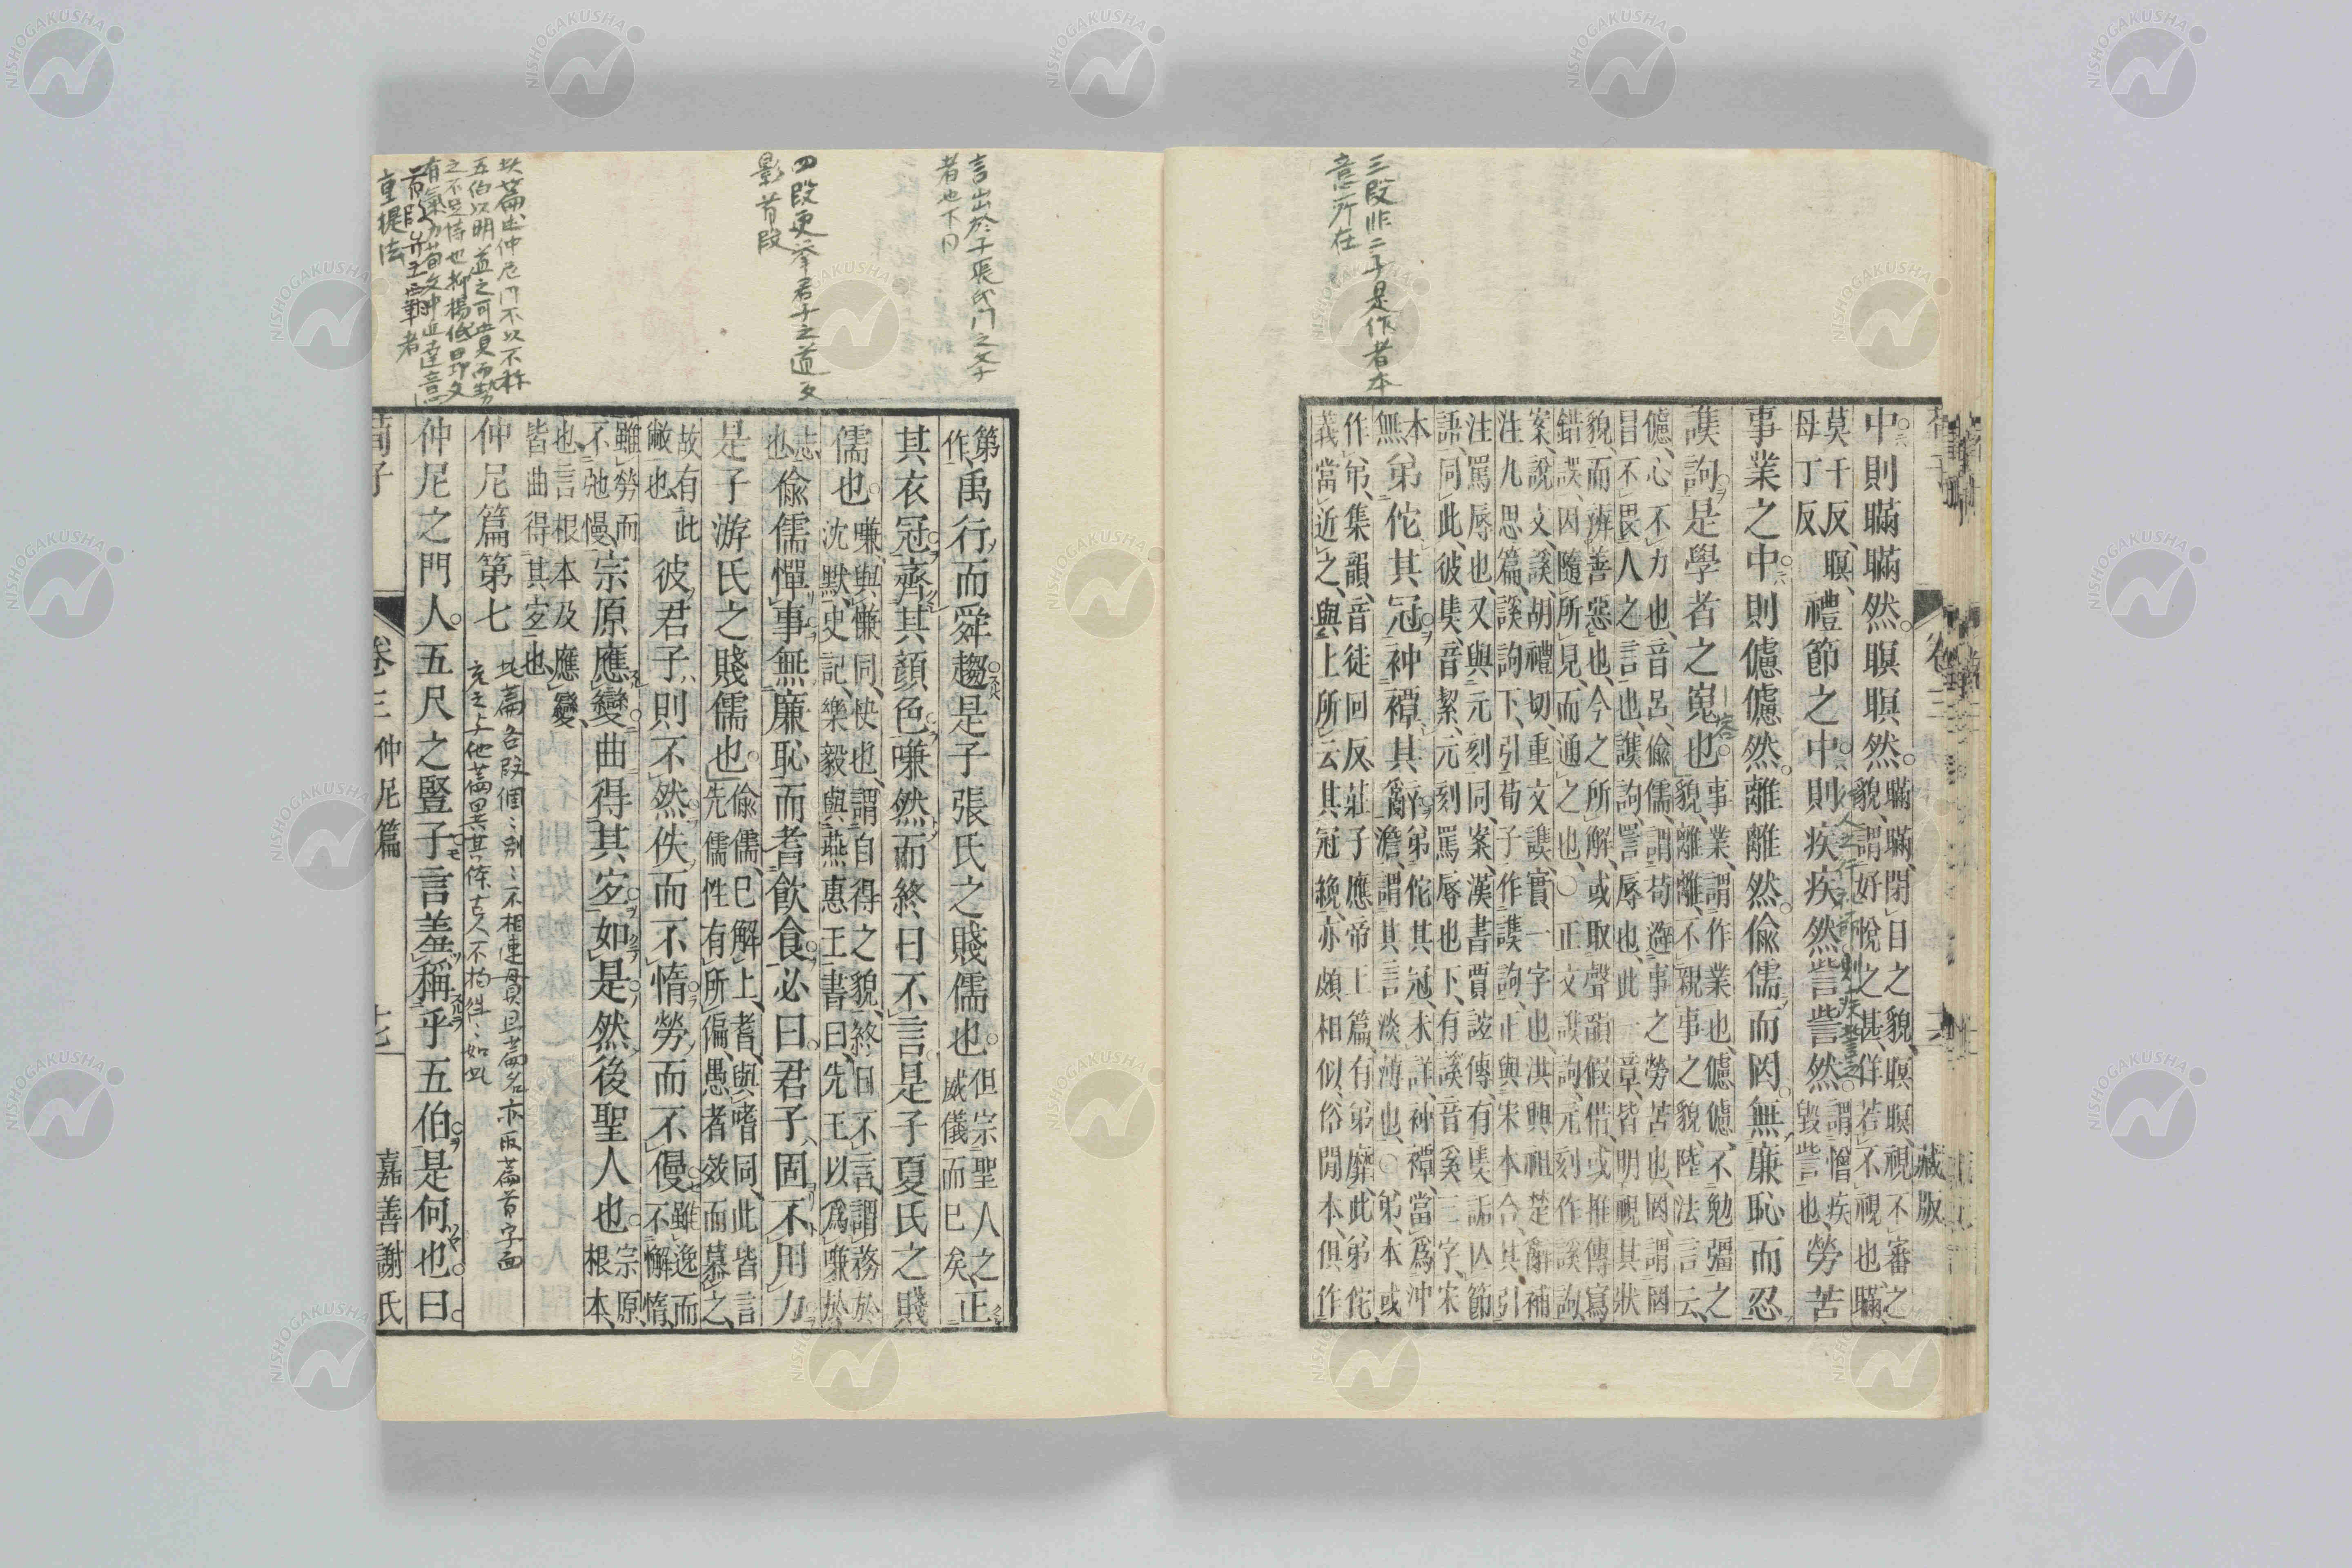 三段非二子是作者本
意所在
中則瞞瞞然瞑瞑然
瞞瞞閉目之貌瞑瞑視不審之
貌謂好悅之甚佯若不視也瞞
莫干反瞑
母丁反
禮節之中則疾疾然訾訾然
謂憎疾
毀訾也
勞苦
事業之中則儢儢然離離然偷儒而罔無廉恥而忍
謑詢是學者之嵬也
事業謂作業也儢儢不勉彊之
貌離離不親事之貌陸法言云
儢心不力也音呂偷儒謂苟避事之勞苦也罔謂罔
冒不畏人之言也謑詢詈辱也此一章皆明視其狀
貌而辨善惡也今之所解或取聲韻假借或推傳寫
錯誤因隨所見而通之也○正文謑詢元刻作謑詢
案說文謑胡禮切重文謨實一字也洪興祖楚辭補
注九思篇謑詢下引荀子作謨詢正與宋本合其引
注罵辱也又與元刻同案漢書賈誼傳有奊詬亾節
語同此彼奊音絜元刻罵辱也下有謑音奚三字宋
本
無
弟佗其冠衶禫其辭
弟佗其冠未詳衶禫當爲沖
澹謂其言淡薄也○弟本或
作弔集韻音徒回反莊子應帝王篇有弟靡此弟佗
義當近之與上所云其冠絻亦頗相似俗閒本俱作
藏版
言出於子張氏門之弟子
者也下同
四段更举君子之道文
影首段
此篇出仲尼門不以不称
五伯以明道之可貴而勢
之不足恃也抑揚低昂文
重提法
第
作
禹行而舜趨是子張氏之賤儒也
但宗聖人之
威儀而已矣
正
其衣冠齊其顏色嗛然而終日不言是子夏氏之賤
儒也
嗛與慊同快也謂自得之貌終日不言謂務於
沈默史記樂毅與燕惠王書曰先王以爲嗛於
志
也
偷儒憚事無廉恥而耆飲食必曰君子固不用力
是子游氏之賤儒也
偷儒已解上耆與嗜同此皆言
先儒性有所偏愚者效而慕之
故有此
敝也
彼君子則不然佚而不惰勞而不僈
雖逸而
不懈惰
雖勞而
不弛慢
宗原應變曲得其宜如是然後聖人也
宗原
根本
也言根本及應變
皆曲得其宜也
仲尼篇第七
此篇各段個々別々不相連貫且篇名亦取篇首字面
仲尼之門人五尺之豎子言羞稱乎五伯是何也曰
荀子
卷三仲尼篇
十七
嘉善謝氏